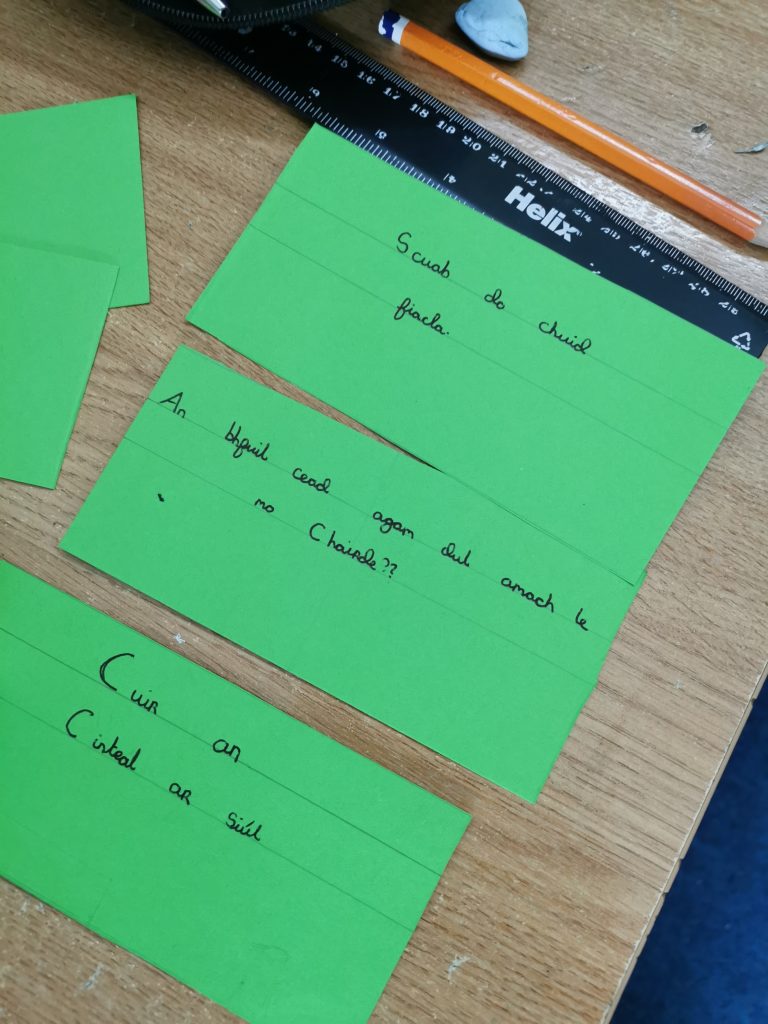 13 14 15 16 17 18 19 20 21
Helix
Scuab do chuid
fiacla.
An bhfuil cead agam dul amach le
mo Chairde??
Cuir an
Cinteal ar siúl